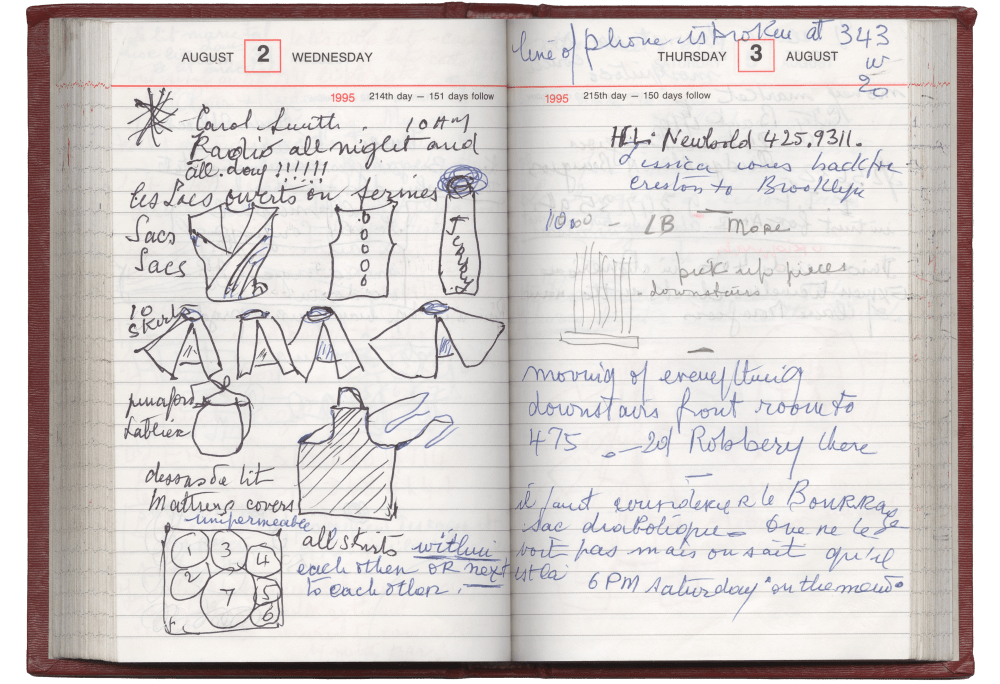 AUGUST 2 WEDNESDAY
1995 214th day – 151 days follow
Carol Smith. 10 AM
Radio all night and
all day !!!!!!
les sacs ouverts ou fermés
Sacs
Sacs
10
skirts
pinafore
tablier
dessus de lit
Mattress covers
unipermeable
1 3 4
2 7 5
6
all skirts within
each other OR next
to each other.
line of phone is broken at 343
W
20
THURSDAY 3 AUGUST
1995 215th day – 150 days follow
Newbold 425.9311.
Jessica comes back from
creston to Brooklyn
1000 – LB – More
pick up pieces
downstairs
moving of everything
downstairs front room to
475 – 2d Robbery there
il faut considerer le Bourrage
sac diabolique – On ne le
voit pas mais on sait qu'il
est là
6 PM Saturday "on the menu"